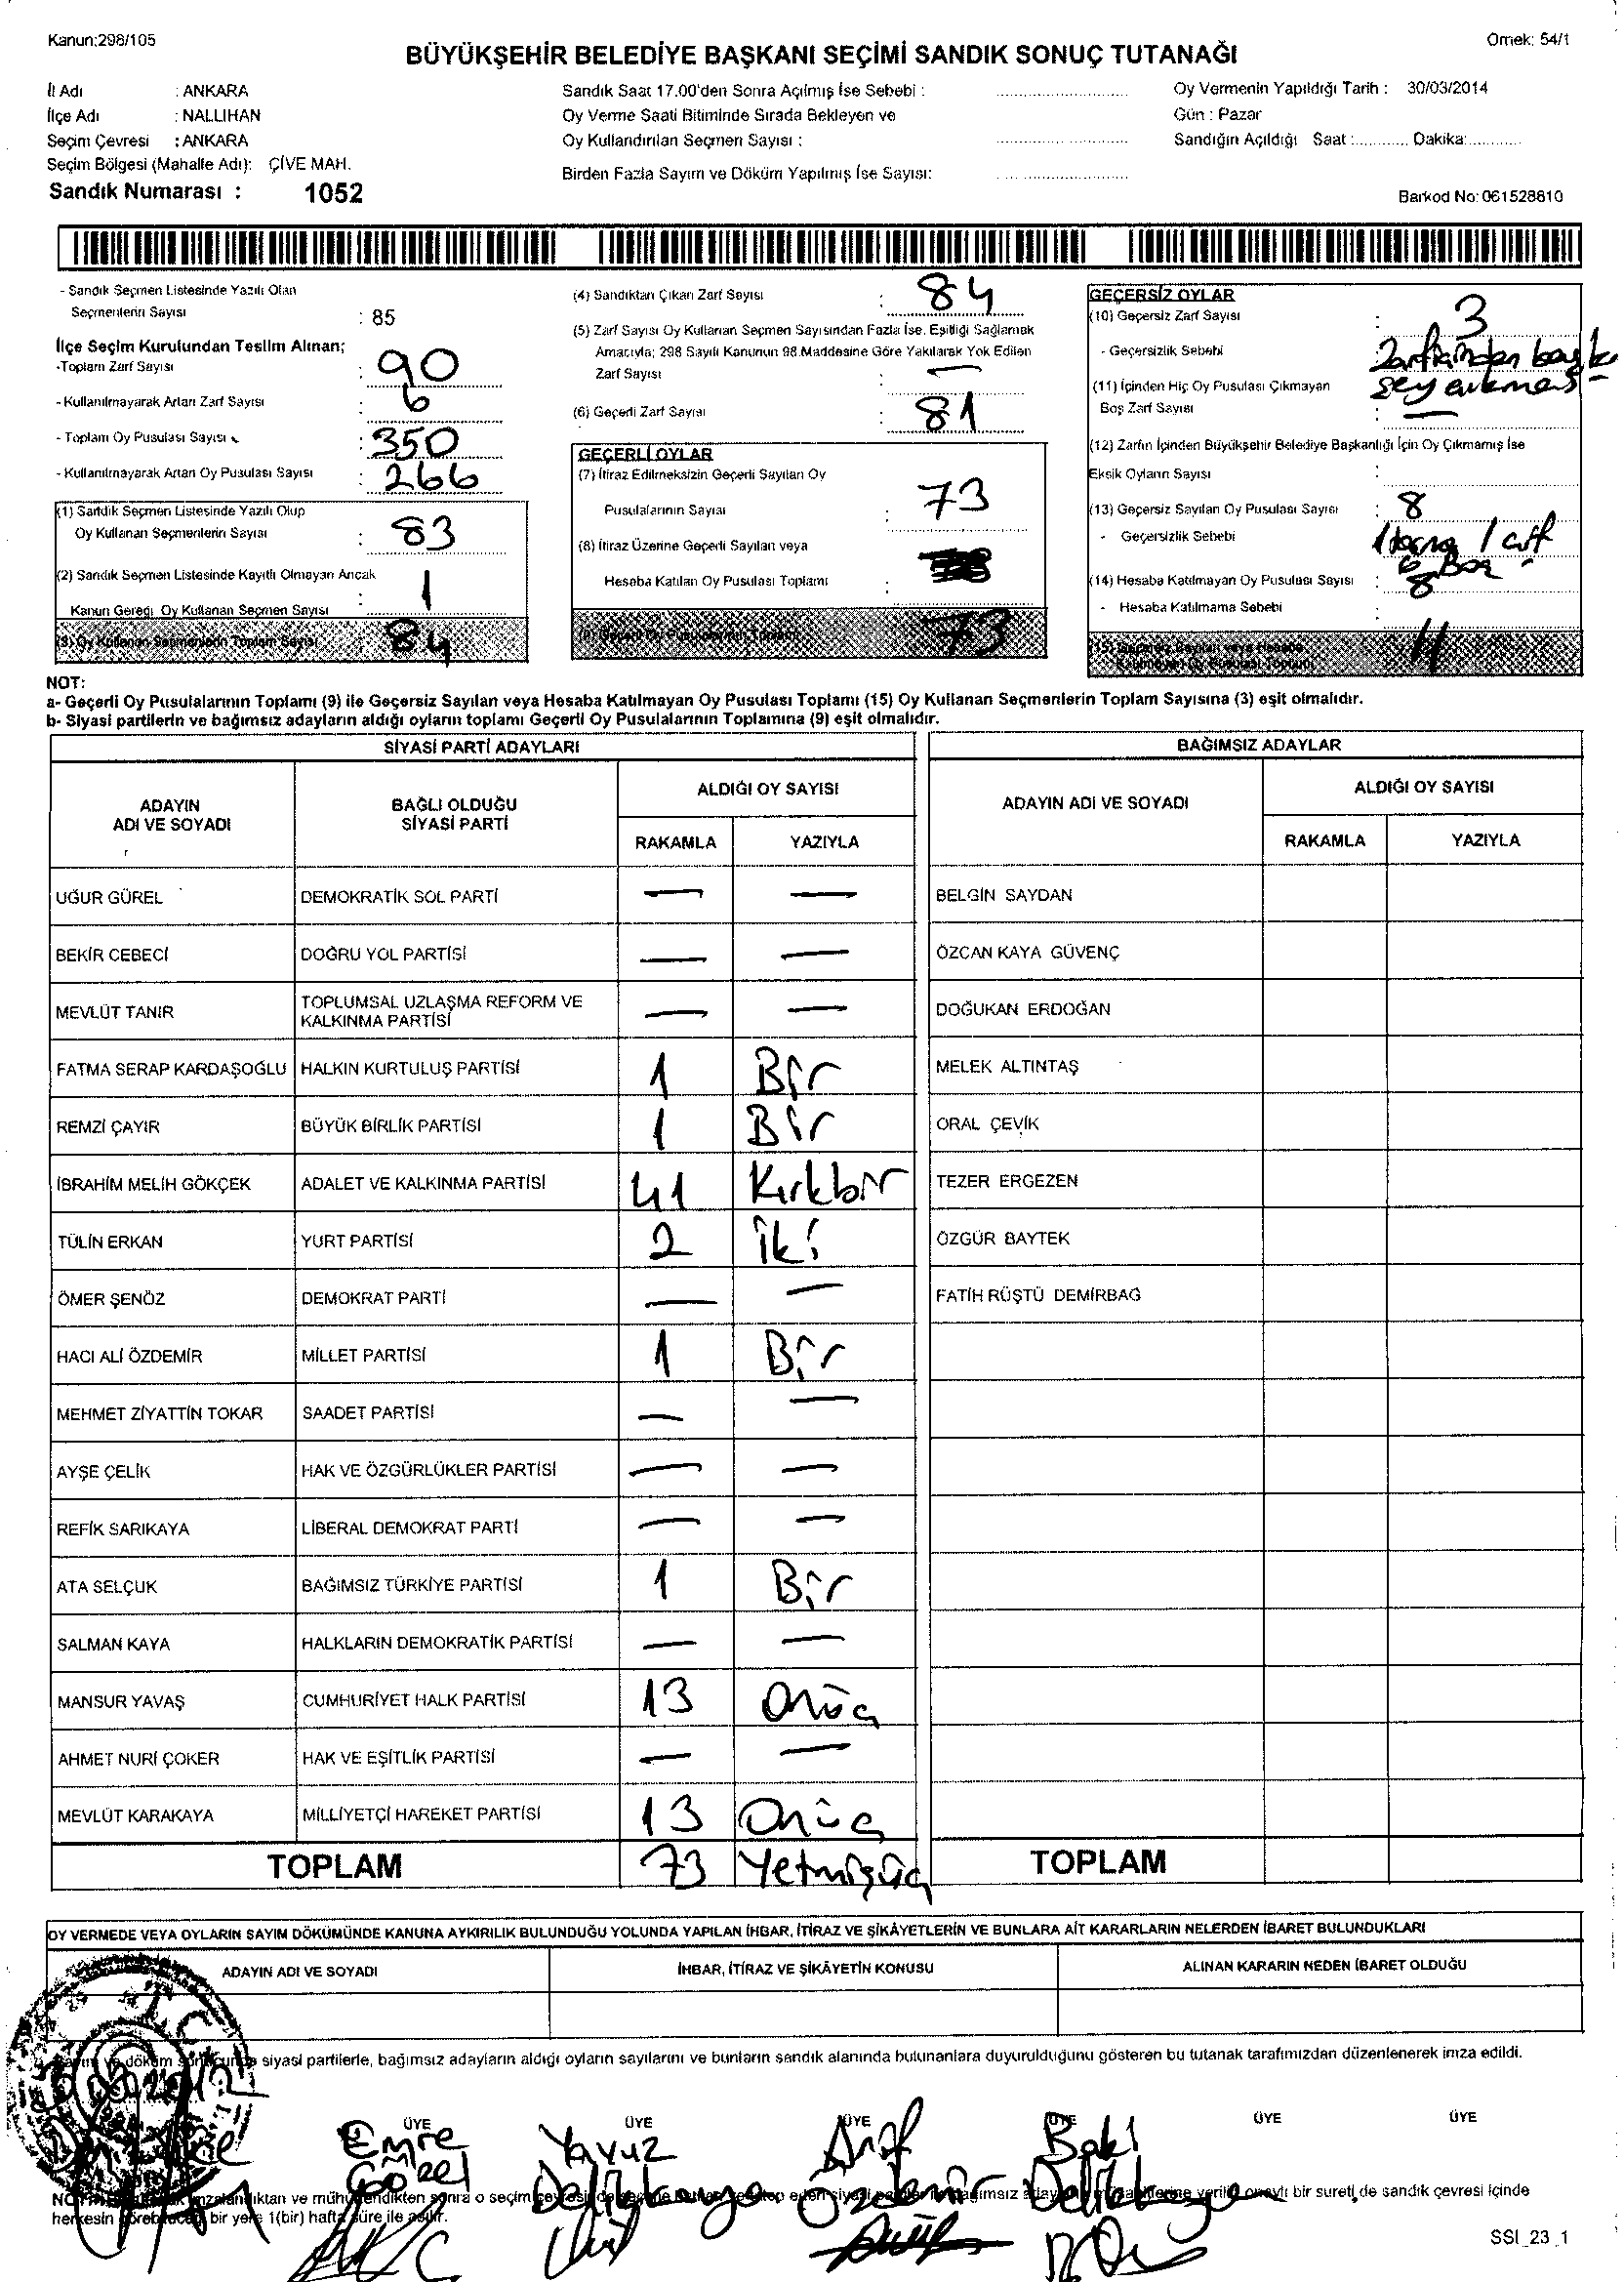 Kanun:298/105
Örnek: 54/1
BÜYÜKŞEHİR BELEDİYE BAŞKANI SEÇİMİ SANDIK SONUÇ TUTANAĞI
İl Adı : ANKARA
İlçe Adı : NALLIHAN
Seçim Çevresi : ANKARA
Seçim Bölgesi (Mahalle Adı): ÇİVE MAH.
Sandık Numarası : 1052
Sandık Saat 17.00'den Sonra Açılmış İse Sebebi :
Oy Verme Saati Bitiminde Sırada Bekleyen ve
Oy Kullandırılan Seçmen Sayısı :
Birden Fazla Sayım ve Döküm Yapılmış İse Sayısı:
Oy Vermenin Yapıldığı Tarih : 30/03/2014
Gün : Pazar
Sandığın Açıldığı Saat :............ Dakika:............
Barkod No: 061528810
- Sandık Seçmen Listesinde Yazılı Olan
Seçmenlerin Sayısı : 85
İlçe Seçim Kurulundan Teslim Alınan;
-Toplam Zarf Sayısı : 90
- Kullanılmayarak Artan Zarf Sayısı : 6
- Toplam Oy Pusulası Sayısı : 350
- Kullanılmayarak Artan Oy Pusulası Sayısı : 266
(1) Sandık Seçmen Listesinde Yazılı Olup
Oy Kullanan Seçmenlerin Sayısı : 83
(2) Sandık Seçmen Listesinde Kayıtlı Olmayan Ancak
Kanun Gereği Oy Kullanan Seçmen Sayısı : 1
(3) Oy Kullanan Seçmenlerin Toplam Sayısı 84
(4) Sandıktan Çıkan Zarf Sayısı : 84
(5) Zarf Sayısı Oy Kullanan Seçmen Sayısından Fazla İse, Eşitliği Sağlamak
Amacıyla; 298 Sayılı Kanunun 98.Maddesine Göre Yakılarak Yok Edilen
Zarf Sayısı : —
(6) Geçerli Zarf Sayısı : 81
GEÇERLİ OYLAR
(7) İtiraz Edilmeksizin Geçerli Sayılan Oy
Pusulalarının Sayısı : 73
(8) İtiraz Üzerine Geçerli Sayılan veya
Hesaba Katılan Oy Pusulası Toplamı :
(9) Geçerli Oy Pusulalarının Toplamı 73
GEÇERSİZ OYLAR
(10) Geçersiz Zarf Sayısı : 3
- Geçersizlik Sebebi : Zarflarından başka
şey çıkması
(11) İçinden Hiç Oy Pusulası Çıkmayan
Boş Zarf Sayısı : —
(12) Zarfın İçinden Büyükşehir Belediye Başkanlığı İçin Oy Çıkmamış İse
Eksik Oyların Sayısı :
(13) Geçersiz Sayılan Oy Pusulası Sayısı : 8
- Geçersizlik Sebebi 1 1 çift
6 Boş
(14) Hesaba Katılmayan Oy Pusulası Sayısı : 8
- Hesaba Katılmama Sebebi
(15) Geçersiz Sayılan veya Hesaba
Katılmayan Oy Pusulası Toplamı 11
NOT:
a- Geçerli Oy Pusulalarının Toplamı (9) ile Geçersiz Sayılan veya Hesaba Katılmayan Oy Pusulası Toplamı (15) Oy Kullanan Seçmenlerin Toplam Sayısına (3) eşit olmalıdır.
b- Siyasi partilerin ve bağımsız adayların aldığı oyların toplamı Geçerli Oy Pusulalarının Toplamına (9) eşit olmalıdır.
SİYASİ PARTİ ADAYLARI
ADAYIN ADI VE SOYADI
BAĞLI OLDUĞU SİYASİ PARTİ
ALDIĞI OY SAYISI
RAKAMLA YAZIYLA
UĞUR GÜREL DEMOKRATİK SOL PARTİ — —
BEKİR CEBECİ DOĞRU YOL PARTİSİ — —
MEVLÜT TANIR TOPLUMSAL UZLAŞMA REFORM VE KALKINMA PARTİSİ — —
FATMA SERAP KARDAŞOĞLU HALKIN KURTULUŞ PARTİSİ 1 Bir
REMZİ ÇAYIR BÜYÜK BİRLİK PARTİSİ 1 Bir
İBRAHİM MELİH GÖKÇEK ADALET VE KALKINMA PARTİSİ 41 Kırkbir
TÜLİN ERKAN YURT PARTİSİ 2 İki
ÖMER ŞENÖZ DEMOKRAT PARTİ — —
HACI ALİ ÖZDEMİR MİLLET PARTİSİ 1 Bir
MEHMET ZİYATTİN TOKAR SAADET PARTİSİ — —
AYŞE ÇELİK HAK VE ÖZGÜRLÜKLER PARTİSİ — —
REFİK SARIKAYA LİBERAL DEMOKRAT PARTİ — —
ATA SELÇUK BAĞIMSIZ TÜRKİYE PARTİSİ 1 Bir
SALMAN KAYA HALKLARIN DEMOKRATİK PARTİSİ — —
MANSUR YAVAŞ CUMHURİYET HALK PARTİSİ 13 Onüç
AHMET NURİ ÇOKER HAK VE EŞİTLİK PARTİSİ — —
MEVLÜT KARAKAYA MİLLİYETÇİ HAREKET PARTİSİ 13 Onüç
TOPLAM 73 Yetmişüç
BAĞIMSIZ ADAYLAR
ADAYIN ADI VE SOYADI
ALDIĞI OY SAYISI
RAKAMLA YAZIYLA
BELGİN SAYDAN
ÖZCAN KAYA GÜVENÇ
DOĞUKAN ERDOĞAN
MELEK ALTINTAŞ
ORAL ÇEVİK
TEZER ERGEZEN
ÖZGÜR BAYTEK
FATİH RÜŞTÜ DEMİRBAĞ
TOPLAM
OY VERMEDE VEYA OYLARIN SAYIM DÖKÜMÜNDE KANUNA AYKIRILIK BULUNDUĞU YOLUNDA YAPILAN İHBAR, İTİRAZ VE ŞİKÂYETLERİN VE BUNLARA AİT KARARLARIN NELERDEN İBARET BULUNDUKLARI
ADAYIN ADI VE SOYADI
İHBAR, İTİRAZ VE ŞİKÂYETİN KONUSU
ALINAN KARARIN NEDEN İBARET OLDUĞU
döküm siyasi partilerle, bağımsız adayların aldığı oyların sayılarını ve bunların sandık alanında bulunanlara duyurulduğunu gösteren bu tutanak tarafımızdan düzenlenerek imza edildi.
ÜYE ÜYE ÜYE ÜYE ÜYE ÜYE
Emre Yavuz Arif Baki
Güzel Delikkaya Özdemir Delikkaya
imzalandıktan ve mühürlendikten sonra o seçim bir sureti de sandık çevresi içinde
herkesin görebileceği bir yere 1(bir) hafta süre ile asılır.
SSI_23_1